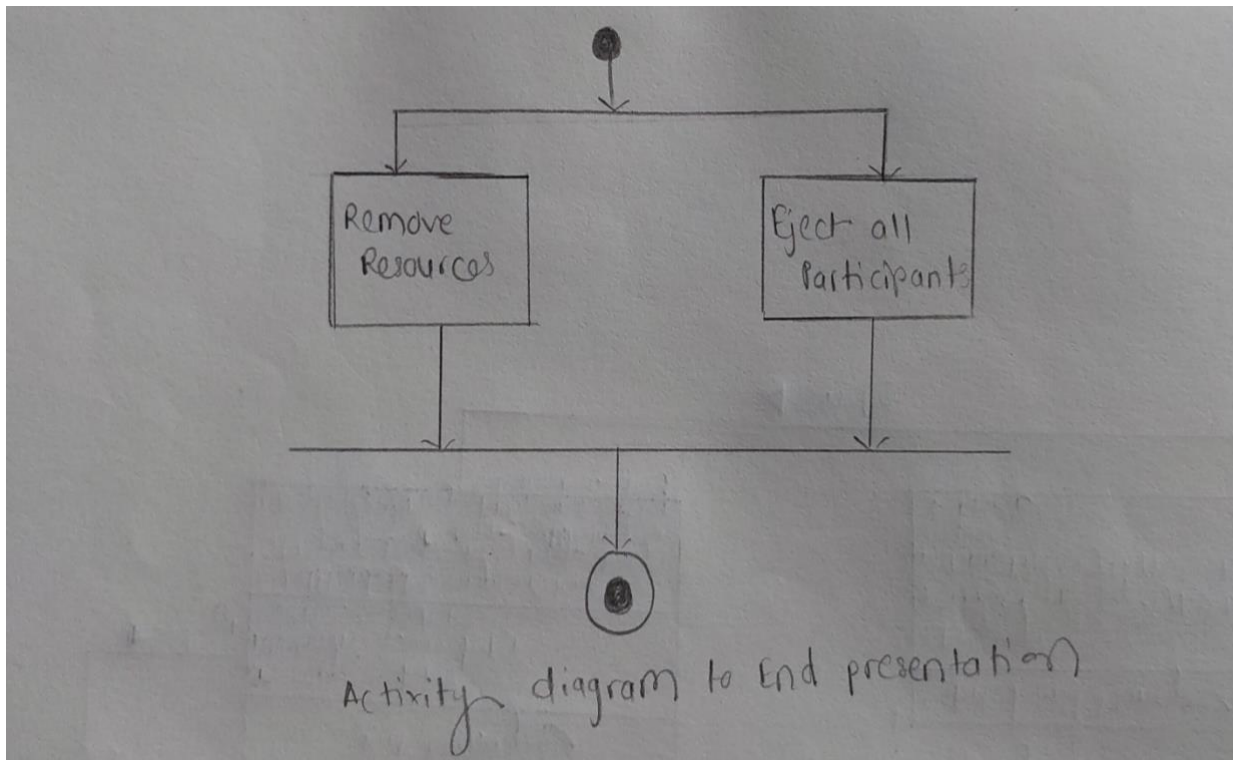 Remove
Resources
Eject all
Participants
Activity diagram to End presentation